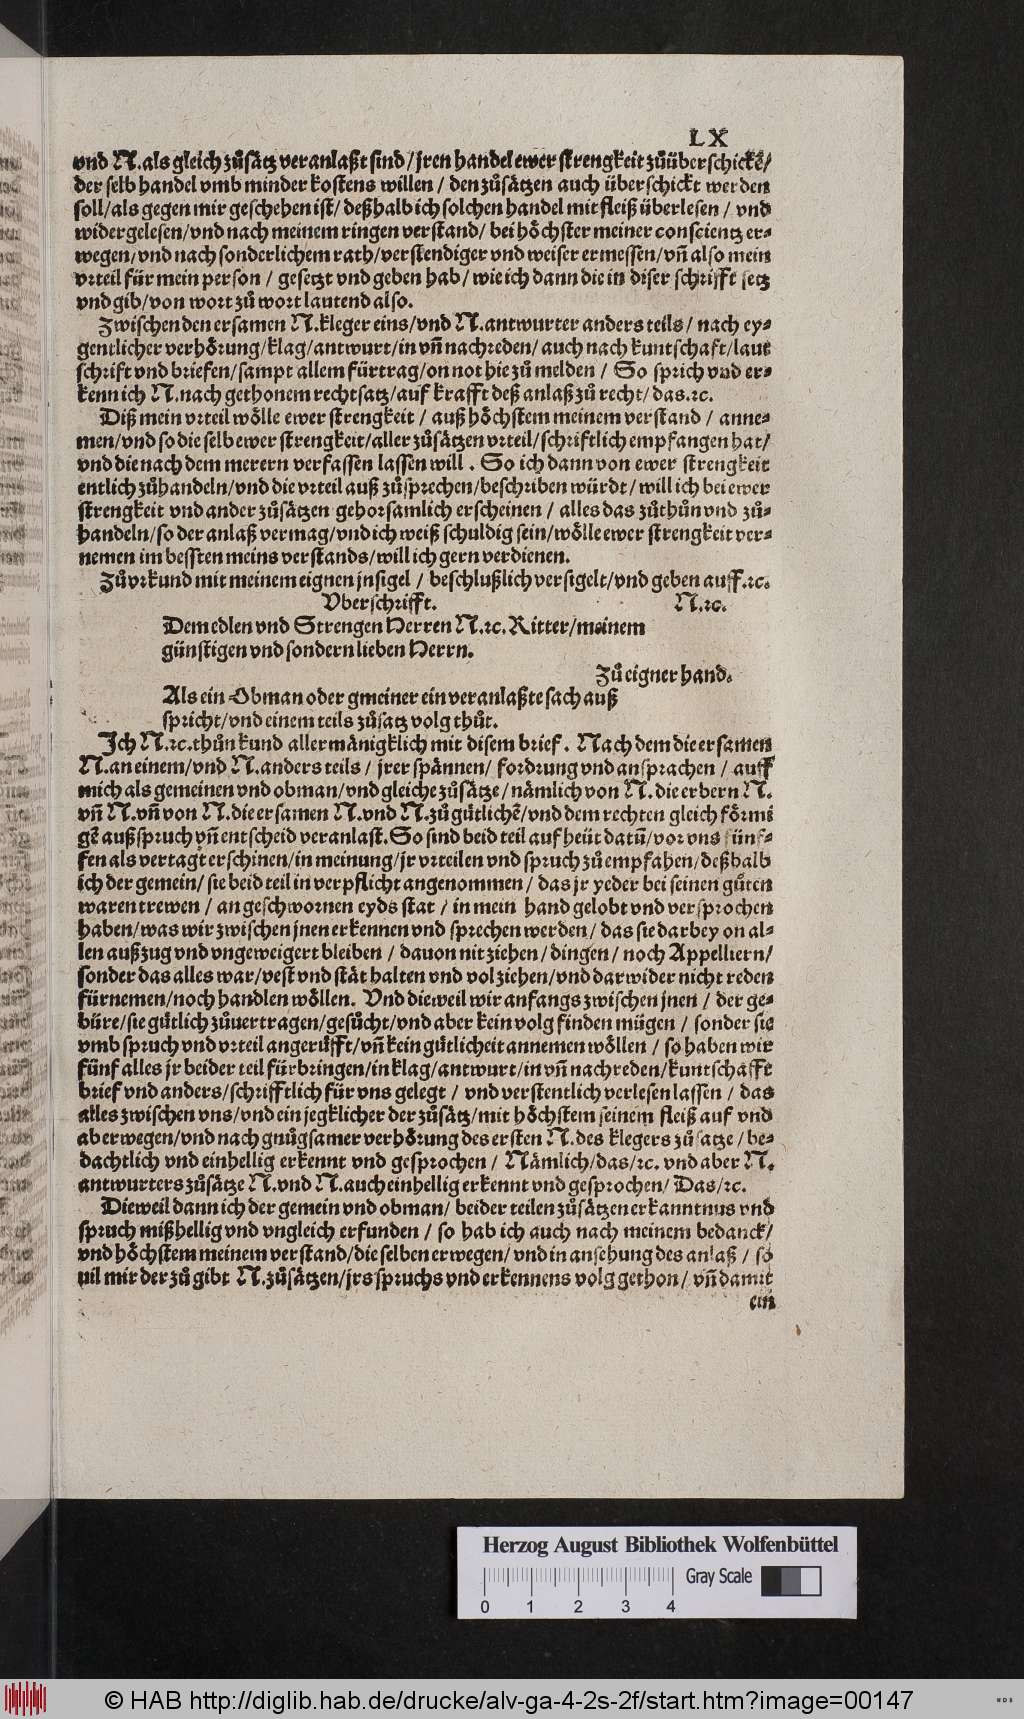 LX
vnd N. als gleich zůsätz veranlaßt sind / jren handel ewer strengkeit zůüberschickē /
der selb handel vmb minder kostens willen / den zůsätzen auch überschickt werden
soll / als gegen mir geschehen ist / deßhalb ich solchen handel mit fleiß überlesen / vnd
widergelesen / vnd nach meinem ringen verstand / bei höchster meiner conscientz er⸗
wegen / vnd nach sonderlichem rath / verstendiger vnd weiser ermessen / vñ also mein
vrteil für mein person / gesetzt vnd geben hab / wie ich dann die in diser schrifft setz
vnd gib / von wort zů wort lautend also.
Zwischen den ersamen N. kleger eins / vnd N. antwurter anders teils / nach ey⸗
gentlicher verhörung / klag / antwurt / in vñ nachreden / auch nach kuntschaft / laut
schrift vnd briefen / sampt allem fürtrag / on not hie zů melden / So sprich vnd er⸗
kenn ich N. nach gethonem rechtsatz / auf krafft deß anlaß zů recht / das. ꝛc.
Diß mein vrteil wölle ewer strengkeit / auß höchstem meinem verstand / anne⸗
men / vnd so die selb ewer strengkeit / aller zůsätzen vrteil / schriftlich empfangen hat /
vnd die nach dem merern verfassen lassen will. So ich dann von ewer strengkeit
entlich zůhandeln / vnd die vrteil auß zůsprechen / beschriben würdt / will ich bei ewer
strengkeit vnd ander zůsätzen gehorsamlich erscheinen / alles das zůthůn vnd zů⸗
handeln / so der anlaß vermag / vnd ich weiß schuldig sein / wölle ewer strengkeit ver⸗
nemen im bessten meins verstands / will ich gern verdienen.
Zůvrkund mit meinem eignen jnsigel / beschlußlich versigelt / vnd geben auff. ꝛc.
Vberschrifft. N. ꝛc.
Dem edlen vnd Strengen Herren N. ꝛc. Ritter / meinem
günstigen vnd sondern lieben Herrn.
Zů eigner hand.
Als ein Obman oder gmeiner ein veranlaßte sach auß
spricht / vnd einem teils zůsatz volg thůt.
Ich N. ꝛc. thůn kund allermänigklich mit disem brief. Nach dem die ersamen
N. an einem / vnd N. anders teils / jrer spännen / fordrung vnd ansprachen / auff
mich als gemeinen vnd obman / vnd gleiche zůsätze / nämlich von N. die erbern N.
vñ N. vñ von N. die ersamen N. vnd N. zů gütlichē / vnd dem rechten gleich förmi
gē außspruch vñ entscheid veranlast. So sind beid teil auf heüt datū / vor vns fünf⸗
fen als vertagt erschinen / in meinung / jr vrteilen vnd spruch zů empfahen / deßhalb
ich der gemein / sie beid teil in verpflicht angenommen / das jr yeder bei seinen gůten
waren trewen / an geschwornen eyds stat / in mein hand gelobt vnd versprochen
haben / was wir zwischen jnen erkennen vnd sprechen werden / das sie darbey on al⸗
len außzug vnd vngeweigert bleiben / dauon nit ziehen / dingen / noch Appelliern /
sonder das alles war / vest vnd stät halten vnd volziehen / vnd darwider nicht reden
fürnemen / noch handlen wöllen. Vnd dieweil wir anfangs zwischen jnen / der ge⸗
büre / sie gütlich zůuertragen / gesůcht / vnd aber kein volg finden mügen / sonder sie
vmb spruch vnd vrteil angerůfft / vñ kein gütlicheit annemen wöllen / so haben wir
fünf alles jr beider teil fürbringen / in klag / antwurt / in vñ nachreden / kuntschafft
brief vnd anders / schrifftlich für vns gelegt / vnd verstentlich verlesen lassen / das
alles zwischen vns / vnd ein jegklicher der zůsätz / mit höchstem seinem fleiß auf vnd
ab erwegen / vnd nach gnůgsamer verhörung des ersten N. des klegers zůsatze / be⸗
dachtlich vnd einhellig erkennt vnd gesprochen / Nämlich / das / ꝛc. vnd aber N.
antwurters zůsätze N. vnd N. auch einhellig erkennt vnd gesprochen / Das / ꝛc.
Dieweil dann ich der gemein vnd obman / beider teilen zůsätzen erkanntnus vnd
spruch mißhellig vnd vngleich erfunden / so hab ich auch nach meinem bedanck /
vnd höchstem meinem verstand / die selben erwegen / vnd in ansehung des anlaß / so
uil mir der zů gibt N. zůsätzen / jrs spruchs vnd erkennens volg gethon / vñ damit
ein
Herzog August Bibliothek Wolfenbüttel
Gray Scale
0 1 2 3 4
© HAB http://diglib.hab.de/drucke/alv-ga-4-2s-2f/start.htm?image=00147